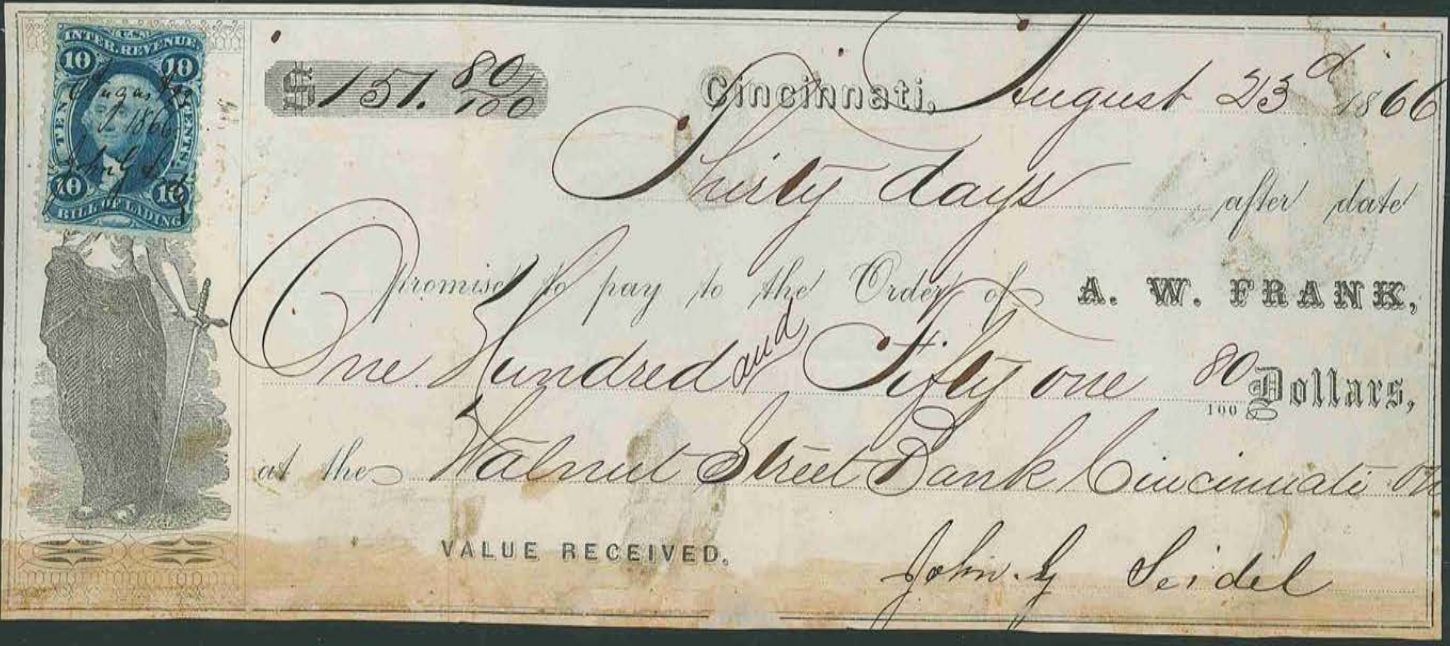 U.S.
INTER. REVENUE
10 10
TEN CENTS.
August
1866
John G
10 10
BILL OF LADING
$151. 80/100
Cincinnati, August 23d 1866
Thirty days after date
promise to pay to the Order of A. W. FRANK,
One Hundred and Fifty one 80/100 Dollars,
at the Walnut Street Bank Cincinnati
VALUE RECEIVED.
John. G Seidel